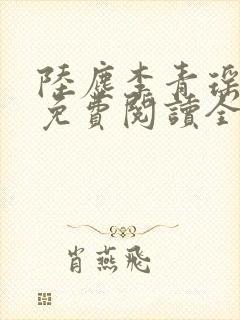 陸塵李青瑤
免費閱讀全
肖燕飛